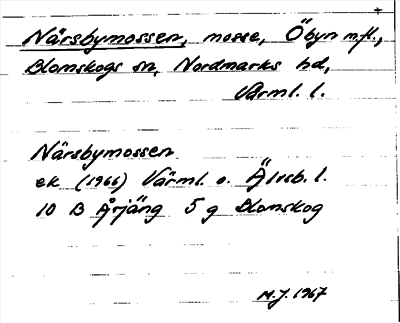 Närsbymossen, mosse, Öbyn m.fl.,
Blomskogs sn, Nordmarks hd,
Värml. l.
Närsbymossen
ek (1966) Värml. o. Älvsb. l.
10 B Årjäng 5 g Blomskog
M.J. 1967